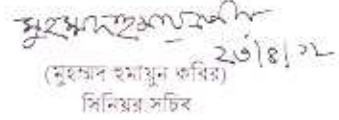 ২৩/৪/১২
(মুহম্মদ হুমায়ুন কবির)
সিনিয়র সচিব